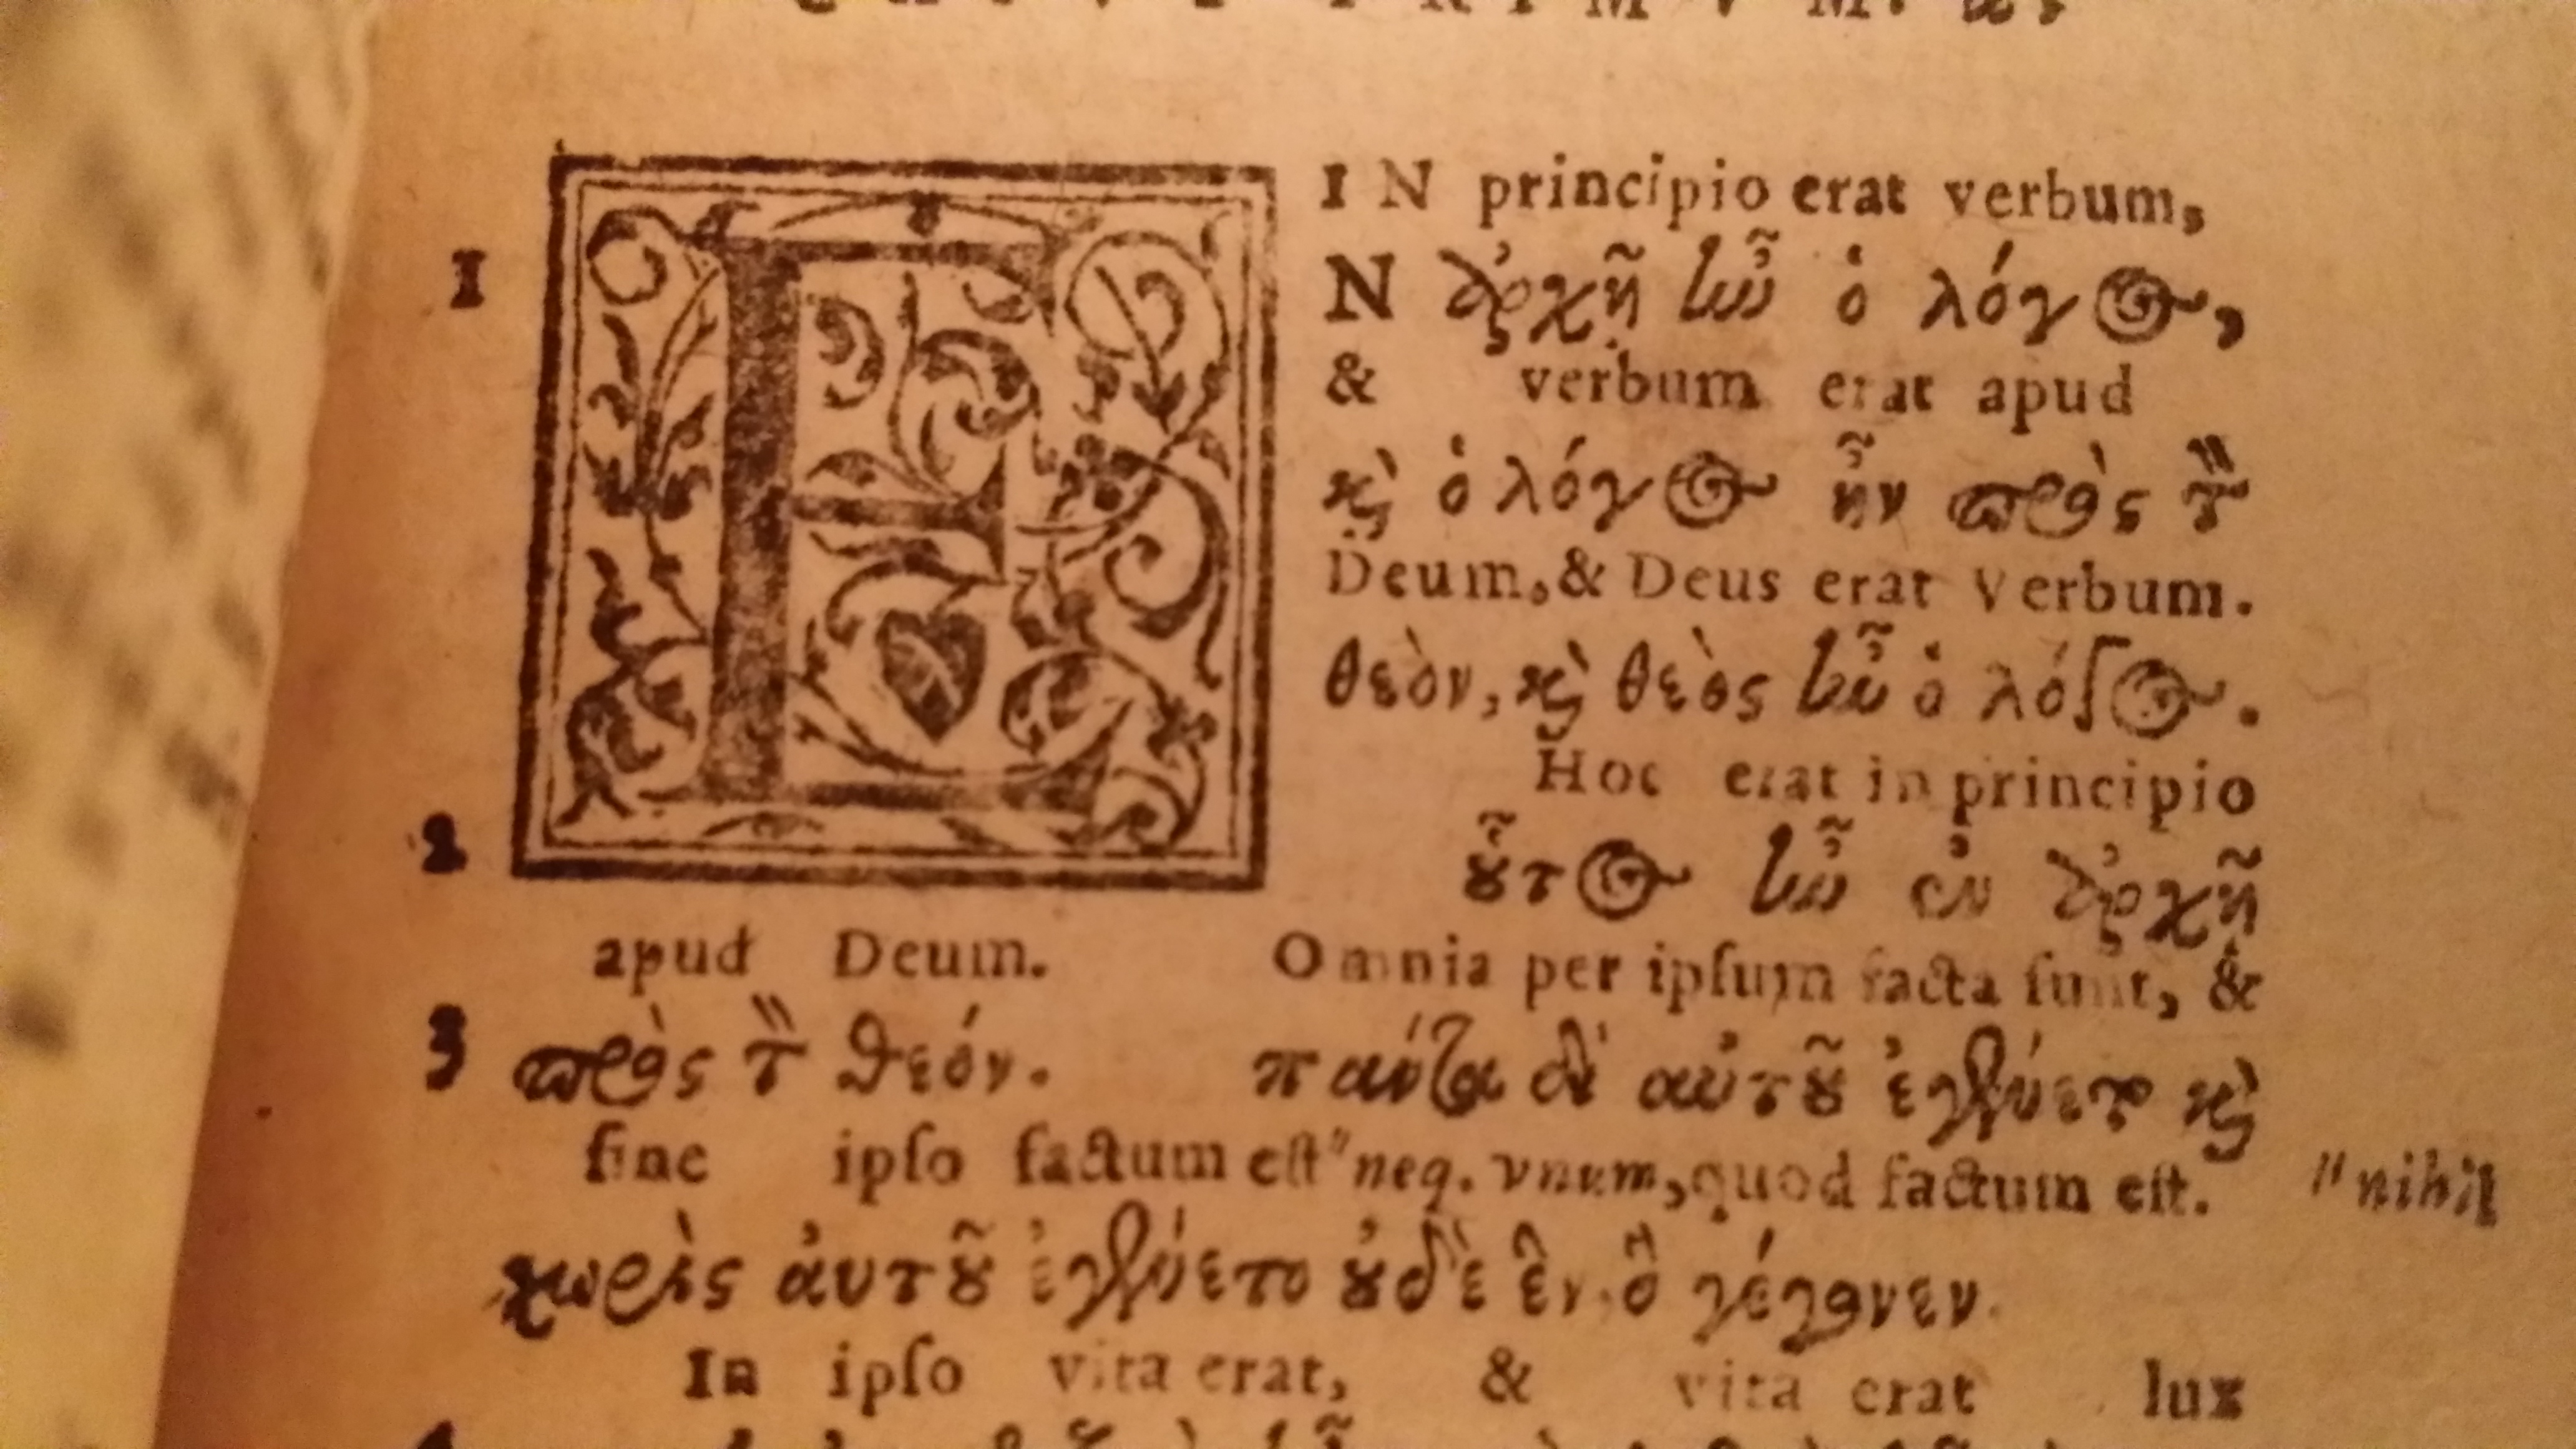 PRIMVM.
IN principio erat verbum,
1 EN ἀρχῇ ἦν ὁ λόγος,
& verbum erat apud
ϗ ὁ λόγος ἦν πρὸς τ̀
Deum, & Deus erat Verbum.
θεὸν, ϗ θεὸς ἦν ὁ λόγος.
Hoc erat in principio
2 ȣ̃τος ἦν ἐν ἀρχῇ
apud Deum. Omnia per ipſum facta ſunt, &
3 πρὸς τ̀ θεόν. πάντα δι' αὐτȣ̃ ἐγένετο ϗ
ſine ipſo factum eſt" neq. vnum, quod factum eſt. "nihil
χωρὶς ἀυτȣ̃ ἐγένετο ȣ̓δὲ ἓν, ὃ γέγονεν.
In ipſo vita erat, & vita erat lux